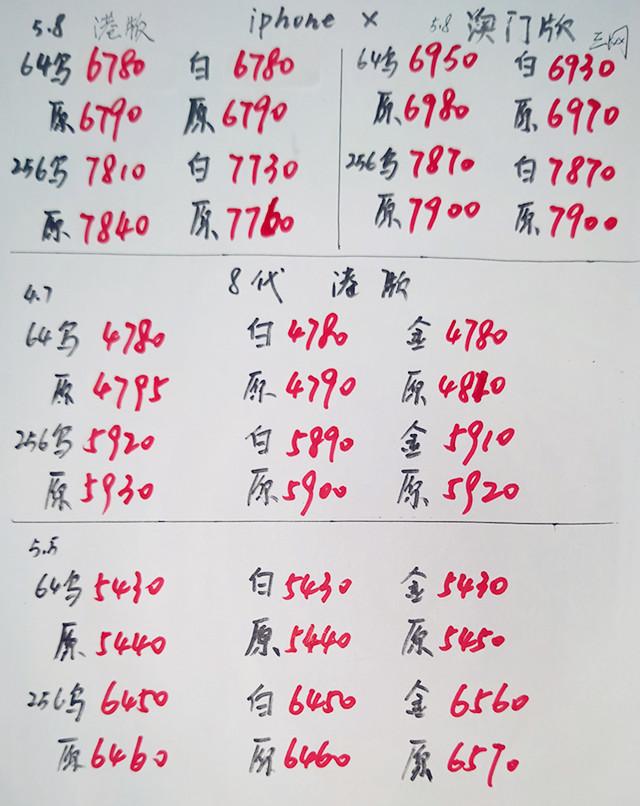 iphone x
5.8 港版
64乌 6780 白 6780
原 6790 原 6790
256乌 7810 白 7730
原 7840 原 7760
5.8 澳门版 三网
64乌 6950 白 6930
原 6980 原 6970
256乌 7870 白 7870
原 7900 原 7900
4.7 8代 港版
64乌 4780 白 4780 金 4780
原 4795 原 4790 原 4810
256乌 5920 白 5890 金 5910
原 5930 原 5900 原 5920
5.5
64乌 5430 白 5430 金 5430
原 5440 原 5440 原 5450
256乌 6450 白 6450 金 6560
原 6460 原 6460 原 6570